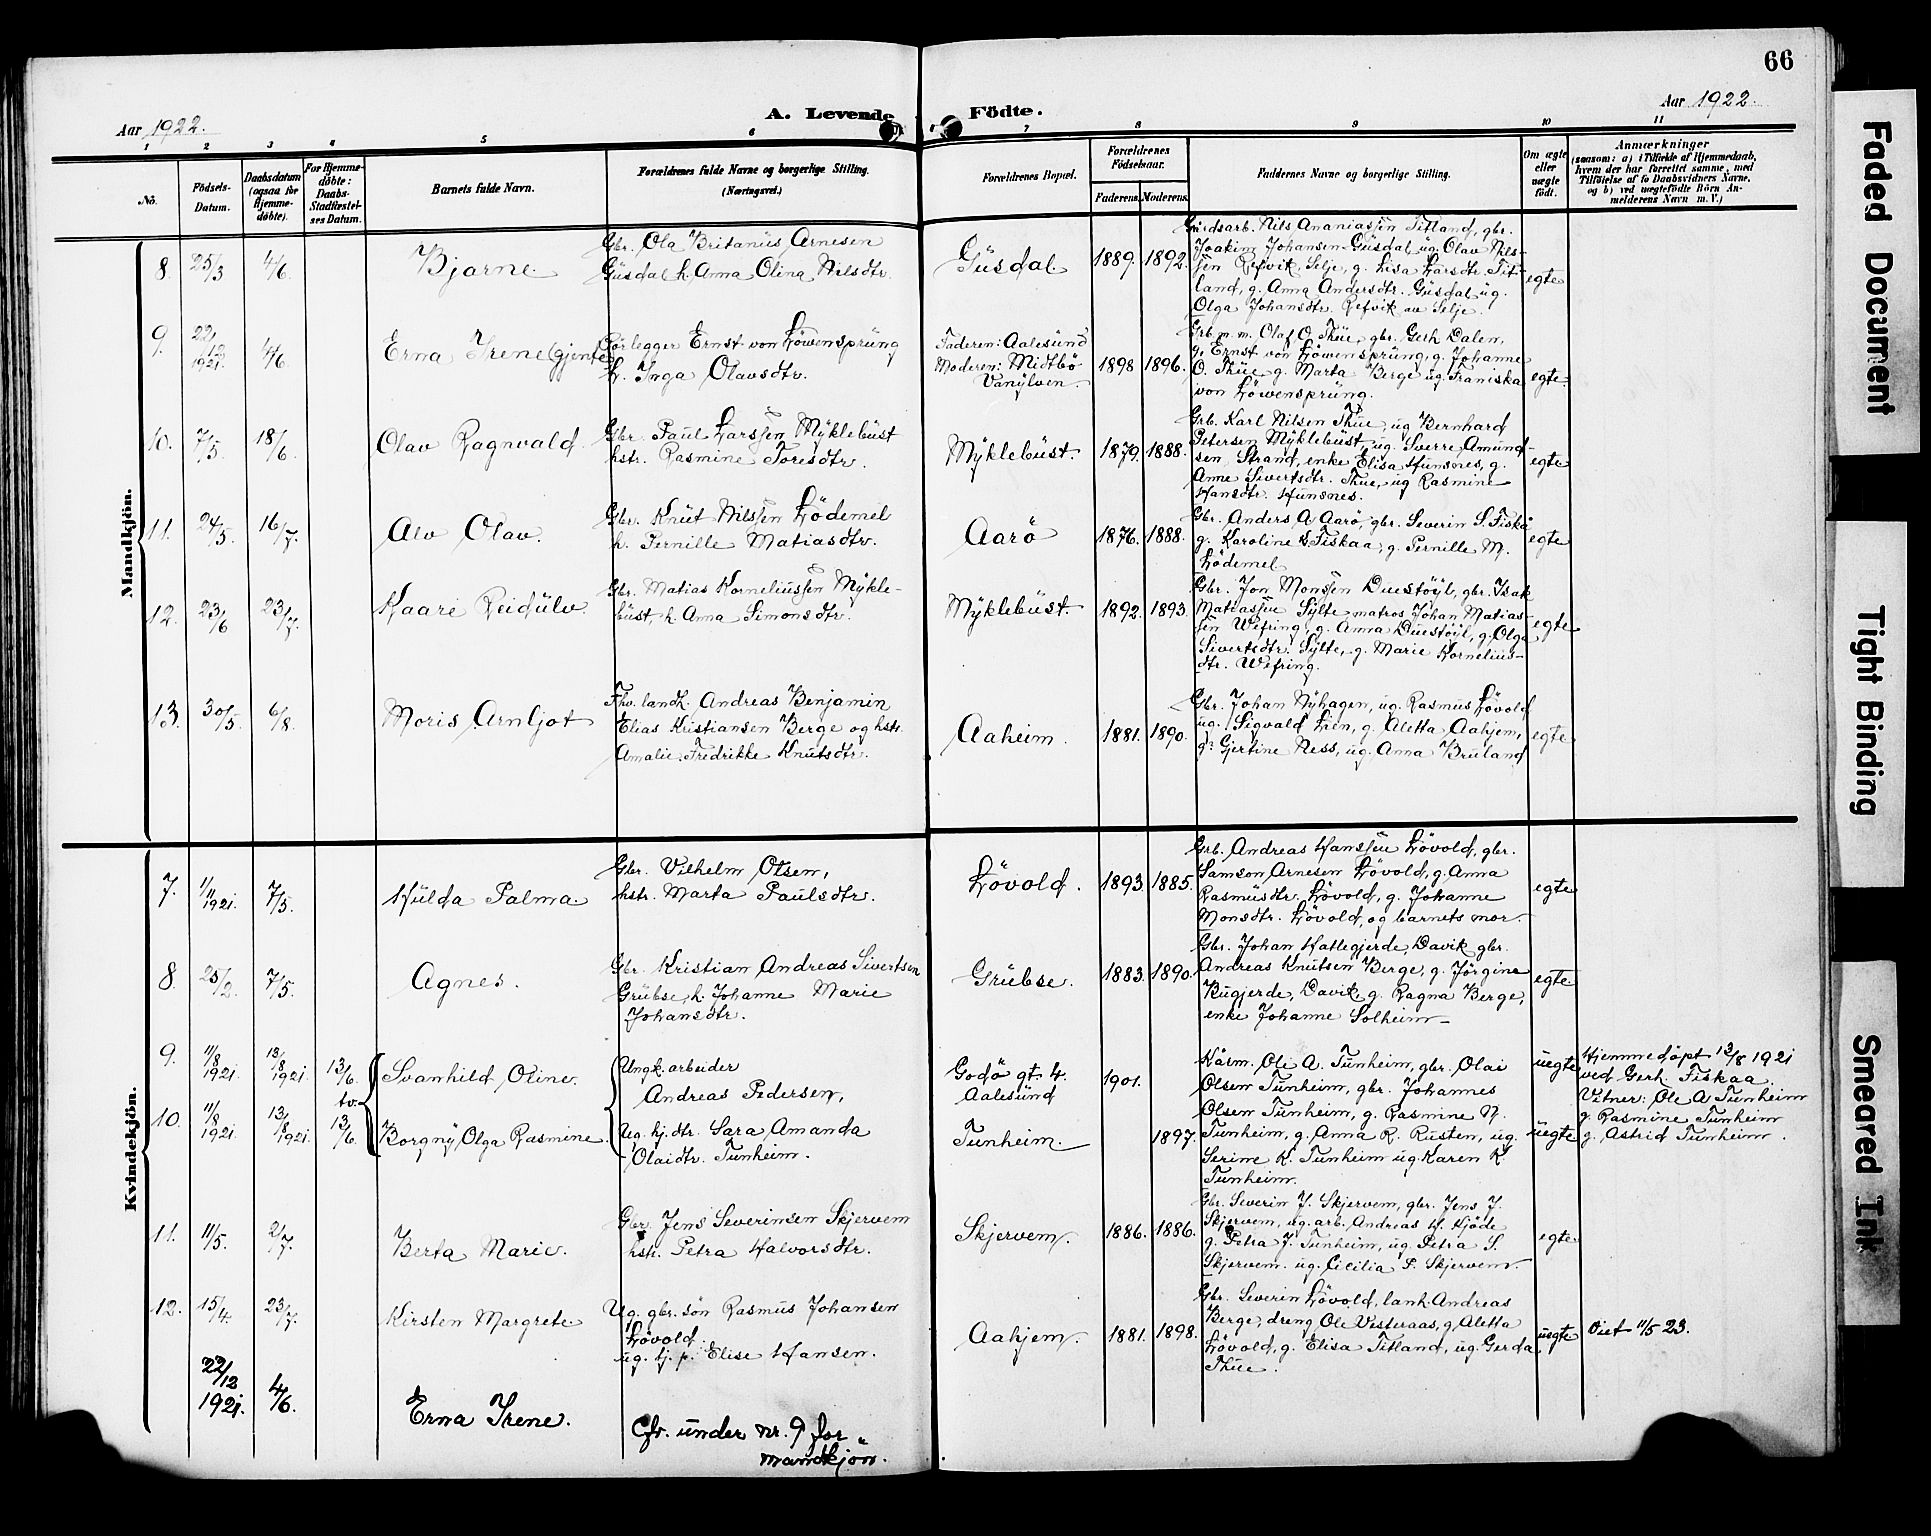 66
Aar 1922.
A. Levende Födte.
Aar 1922.
1 2 3 4 5 6 7 8 9 10 11
No.
Födsels-Datum.
Daabsdatum (ogsaa for Hjemme-döbte).
For Hjemme-döbte: Daabs-Stadfæstel-ses Datum.
Barnets fulde Navn.
Forældrenes fulde Navne og borgerlige Stilling.
(Næringsvei.)
Forældrenes Bopæl.
Forældrenes Födselsaar.
Faderens. Moderens.
Faddernes Navne og borgerlige Stilling.
Om ægte eller uægte födt.
Anmærkninger
(saasom: a) i Tilfælde af Hjemmedaab, hvem der har forrettet samme, med Tilföielse af to Daabsvidners Navne, og b) ved uægtefödte Börn Anmelderens Navn m. V.)
Mandkjön.
8. 25/3 4/6 Bjarne
Gbr. Ola Britanius Arnesen
Gusdal h. Anna Olina Nilsdtr.
Gusdal 1889. 1892.
Gaardsarb. Nils Ananiassen Titland, gbr.
Joakim Johansen Gusdal, ug. Olav Nils-
sen Refvik, Selje, g. Lisa Larsdtr. Tit-
land, g. Anna Andersdtr. Gusdal ug.
Olga Johansdtr. Refvik av Selje.
egte
9. 22/12 1921. 4/6 Erna Irene (gjente)
Rörlegger Ernst von Löwensprung
h. Inga Olavsdtr.
Faderen: Aalesund
Moderen: Midtbö
Vanylven.
1898 1896.
Grb. m. m. Olaf O. Thue, gbr. Gerh Dalen,
g. Ernst von Löwensprung, g. Johanne
O. Thue g. Marta Berge ug. Franiska
von Löwensprung.
egte.
10. 7/5. 18/6. Olav Ragnvald
Gbr. Paul Larssen Myklebust
hstr. Rasmine Toresdtr.
Myklebust. 1879. 1888.
Grb. Karl Nilsen Thue, ug Bernhard
Petersen Myklebust, ug. Sverre Amund-
sen, Strand, enke Elisa Hunsnes, g.
Anne Sivertsdtr. Thue, ug Rasmine
Hansdtr. Hunsnes.
egte
11. 24/5. 16/7. Alv Olav.
Gbr. Knut Nilssen Lödemel
h. Pernille Matiasdtr.
Aarö 1876. 1888.
Gbr. Anders A Aarö, gbr. Severin S. Fiskå
g. Karoline S. Fiskaa, g. Pernille M.
Lödemel
egte
12. 23/6 23/7. Kaare Reidulv.
Gbr. Matias Korneliussen Mykle-
bust, h. Anna Simonsdtr.
Myklebust. 1892. 1893.
Gbr. Jon Monssen Duestöyl, gbr. Isak
Matiassen Sylte matros Johan Matias-
sen Wefring, g. Anna Duestöyl, g. Olga
Sivertsdtr. Sylte, g. Marie Kornelius-
dtr. Wefring.
egte
13. 30/5. 6/8. Moris Arnljot
Fhv. landh. Andreas Benjamin
Elias Kristiansen Berge og hstr.
Amalie Fredrikke Knutsdtr.
Aaheim. 1881. 1890.
Gbr. Johan Nyhagen, ug. Rasmus Lövold
ug. Sigvald Lien, g. Aletta Aahjem,
g. Gjertine Ness, ug. Anna Bruland
egte
Kvindekjön.
7. 1/11 1921. 7/5. Hulda Palma.
Gbr. Vilhelm Olsen,
hstr. Marta Paulsdtr.
Lövold. 1893. 1885.
Grb. Andreas Hanssen Lövold, gbr.
Samson Arnesen Lövold, g. Anna
Rasmusdtr. Lövold, g. Johanne
Monsdtr. Lövold, og barnets mor.
egte
8. 25/2. 7/5. Agnes.
Gbr. Kristian Andreas Sivertsen
Grubse, h. Johanne Marie
Johansdtr.
Grubse. 1883. 1890.
Gbr. Johan Hatlegjerde, Davik gbr.
Andreas Knutsen Berge, g. Jörgine
Rugjerde, Davik, g. Ragna Berge,
enke Johanne Solheim
egte
9. 11/8 1921. 13/8 1921. 13/6. Svanhild Oline.
tv.
10. 11/8 1921. 13/8 1921. 13/6. Borgny Olga Rasmine.
Ungk. arbeider
Andreas Pedersen,
Ug. hj. dtr. Sara Amanda
Olaidtr. Tunheim.
Godö gt. 4.
Aalesund 1901.
Tunheim. 1897.
Kårm. Ole A. Tunheim, gbr. Olai
Olsen Tunheim, gbr. Johannes
Olsen Tunheim, g. Rasmine N.
Tunheim, g. Anna R. Rusten, ug.
Serine K. Tunheim ug. Karen K.
Tunheim.
uegte
uegte
Hjemmedöpt 13/8 1921
ved Gerh. Fiskaa.
Vitner: Ole A Tunheim
g. Rasmine Tunheim
g. Astrid Tunheim.
11. 11/5. 2/7. Berta Marie.
Gbr. Jens Severinsen Skjervem
hstr. Petra Halvorsdtr.
Skjervem. 1886. 1886.
Gbr. Severin J. Skjervem, gbr. Jens J.
Skjervem, ug. arb. Andreas H. Hjöde
g. Petra J. Tunheim, ug. Petra S.
Skjervem. ug. Cicilia P. Skjervem.
egte
12. 15/4. 23/7. Kirsten Margrete
Ug. gbr. sön Rasmus Johansen
Lövold
ug. tj. p. Elise Hansen.
Aahjem. 1881. 1898.
Gbr. Severin Lövold, lanh. Andreas
Berge, dreng Ole Vesteraas, g. Aletta
Lövold, g. Elisa Titland, ug. Gerda
Thue.
uegte
11/5 23.
22/12 1921. 4/6. Erna Irene.
Cfr. under nr. 9 for
mandkjön.
Faded Document
Tight Binding
Smeared Ink